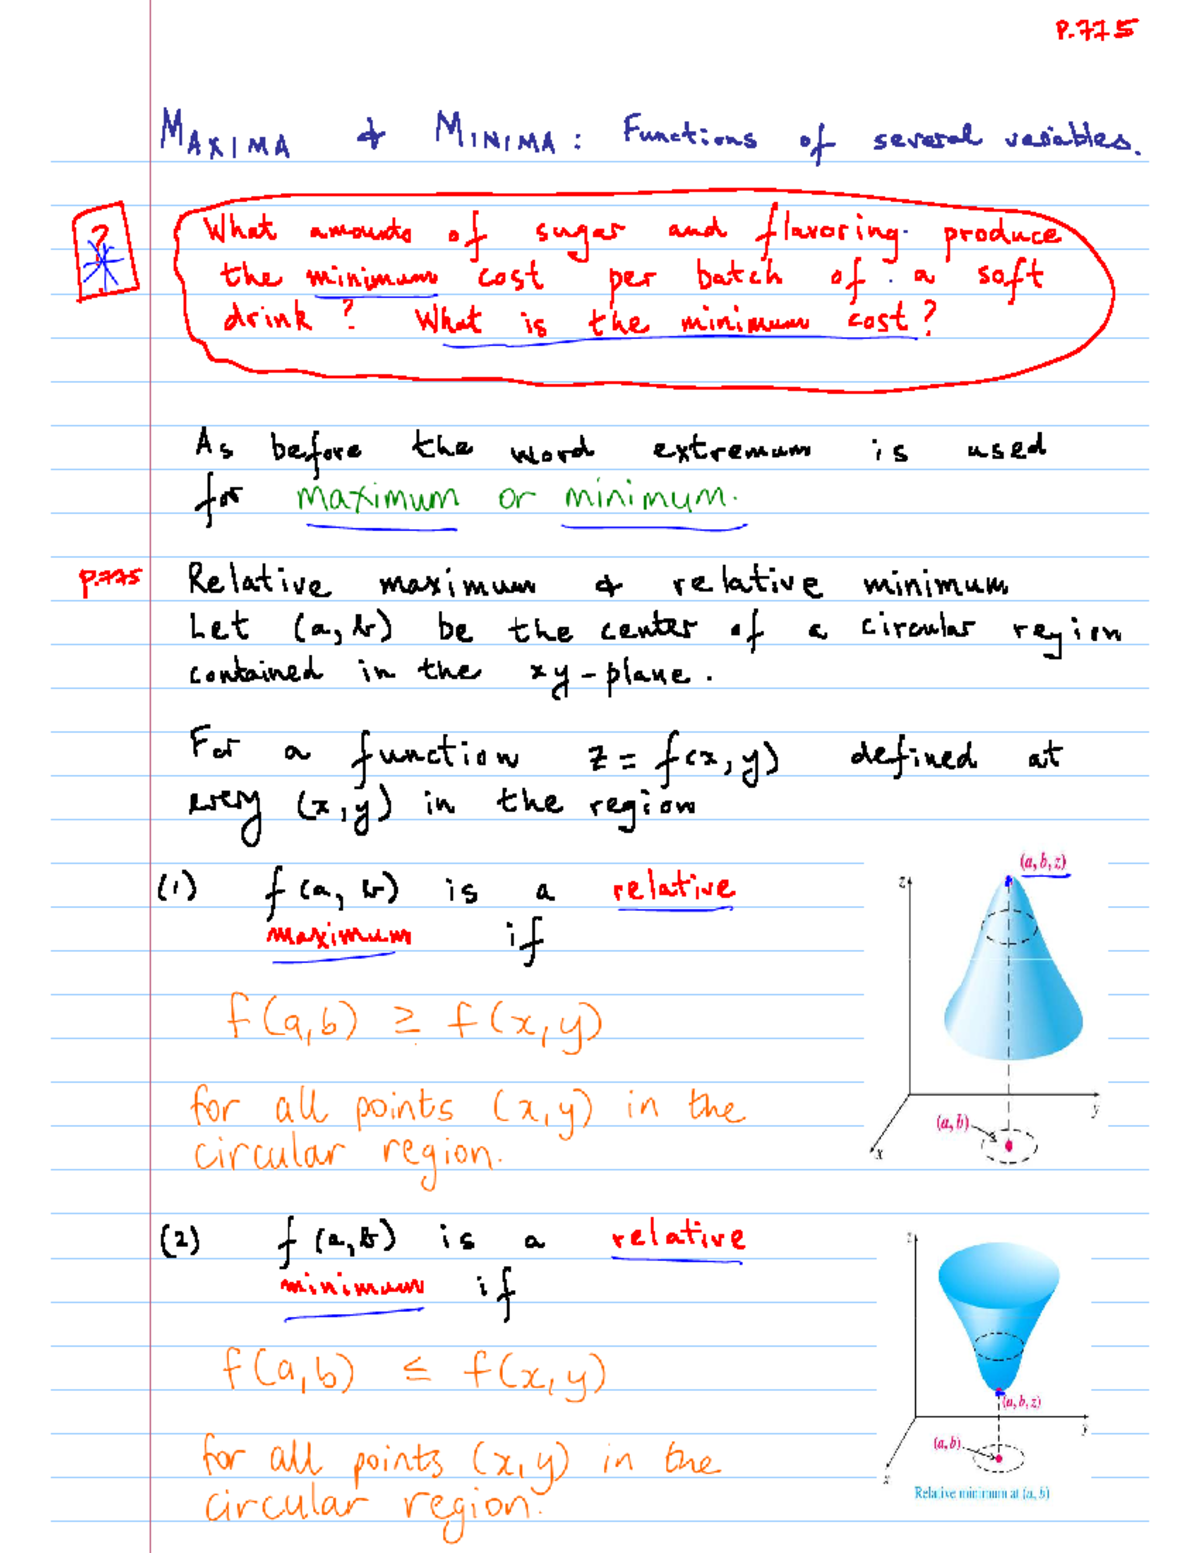 P.775
MAXIMA & MINIMA: Functions of several variables.
?
What amounts of sugar and flavoring produce
the minimum cost per batch of a soft
drink? What is the minimum cost?
As before the word extremum is used
for maximum or minimum.
P.775
Relative maximum & relative minimum
Let (a, b) be the center of a circular region
contained in the xy-plane.
For a function z = f(x, y) defined at
every (x, y) in the region
(1) f(a, b) is a relative
maximum if
f(a, b) ≥ f(x, y)
for all points (x, y) in the
circular region.
(a, b, z)
z
y
(a, b)
x
(2) f(a, b) is a relative
minimum if
f(a, b) ≤ f(x, y)
for all points (x, y) in the
circular region.
z
(a, b, z)
y
(a, b)
x
Relative minimum at (a, b)